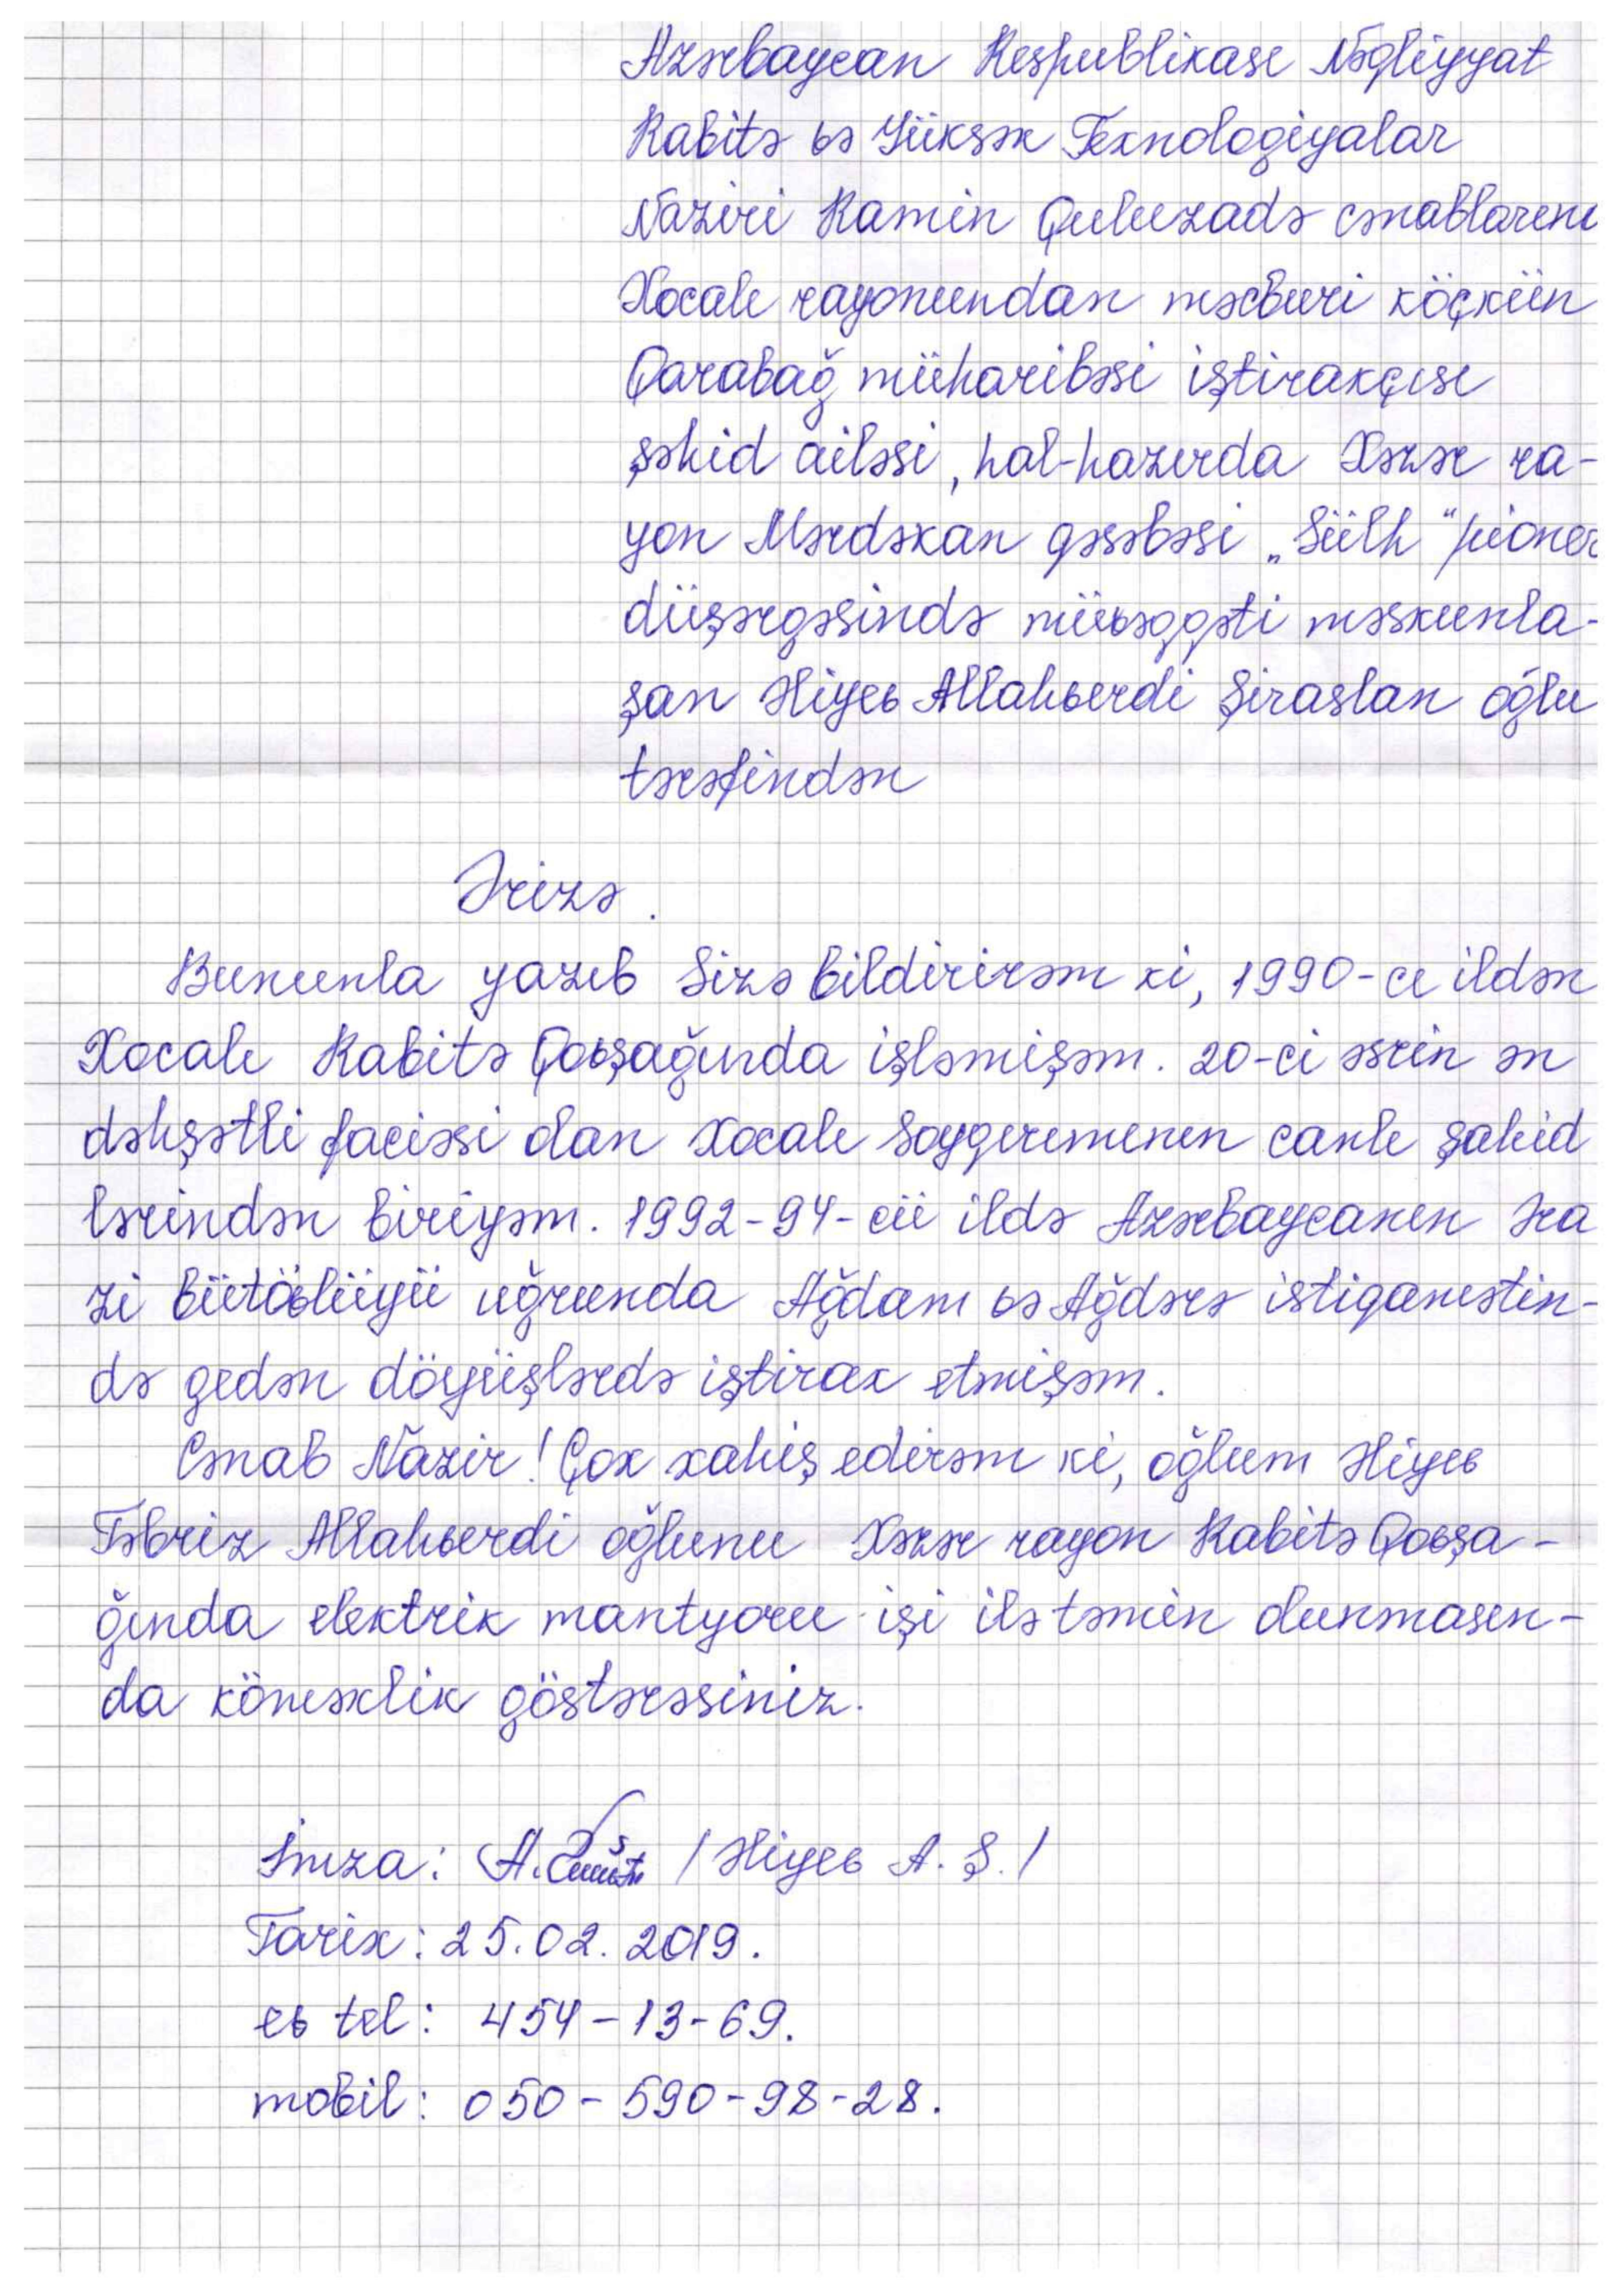 Azərbaycan Respublikası Nəqliyyat
Rabitə və Yüksək Texnologiyalar
Naziri Ramin Quluzadə cənablarına
Xocalı rayonundan məcburi köçkün
Qarabağ müharibəsi iştirakçısı
şəhid ailəsi, hal-hazırda Xəzər ra-
yon Mərdəkan qəsəbəsi „Sülh“ pioner
düşərgəsində müvəqqəti məskunla-
şan Əliyev Allahverdi Şiraslan oğlu
tərəfindən
Ərizə.
Bununla yazıb Sizə bildirirəm ki, 1990-cı ildən
Xocalı Rabitə Qovşağında işləmişəm. 20-ci əsrin ən
dəhşətli faciəsi olan Xocalı Soyqırımının canlı şahid
lərindən biriyəm. 1992-94-cü ildə Azərbaycanın əra
zi bütövlüyü uğrunda Ağdam və Ağdərə istiqamətin-
də gedən döyüşlərdə iştirak etmişəm.
Cənab Nazir! Çox xahiş edirəm ki, oğlum Əliyev
Təbriz Allahverdi oğlunu Xəzər rayon Rabitə Qovşa-
ğında elektrik mantyoru işi ilə təmin olunmasın-
da köməklik göstərəsiniz.
İmza: / Əliyev A. Ş. /
Tarix: 25.02.2019.
ev tel: 454-13-69.
mobil: 050-590-98-28.